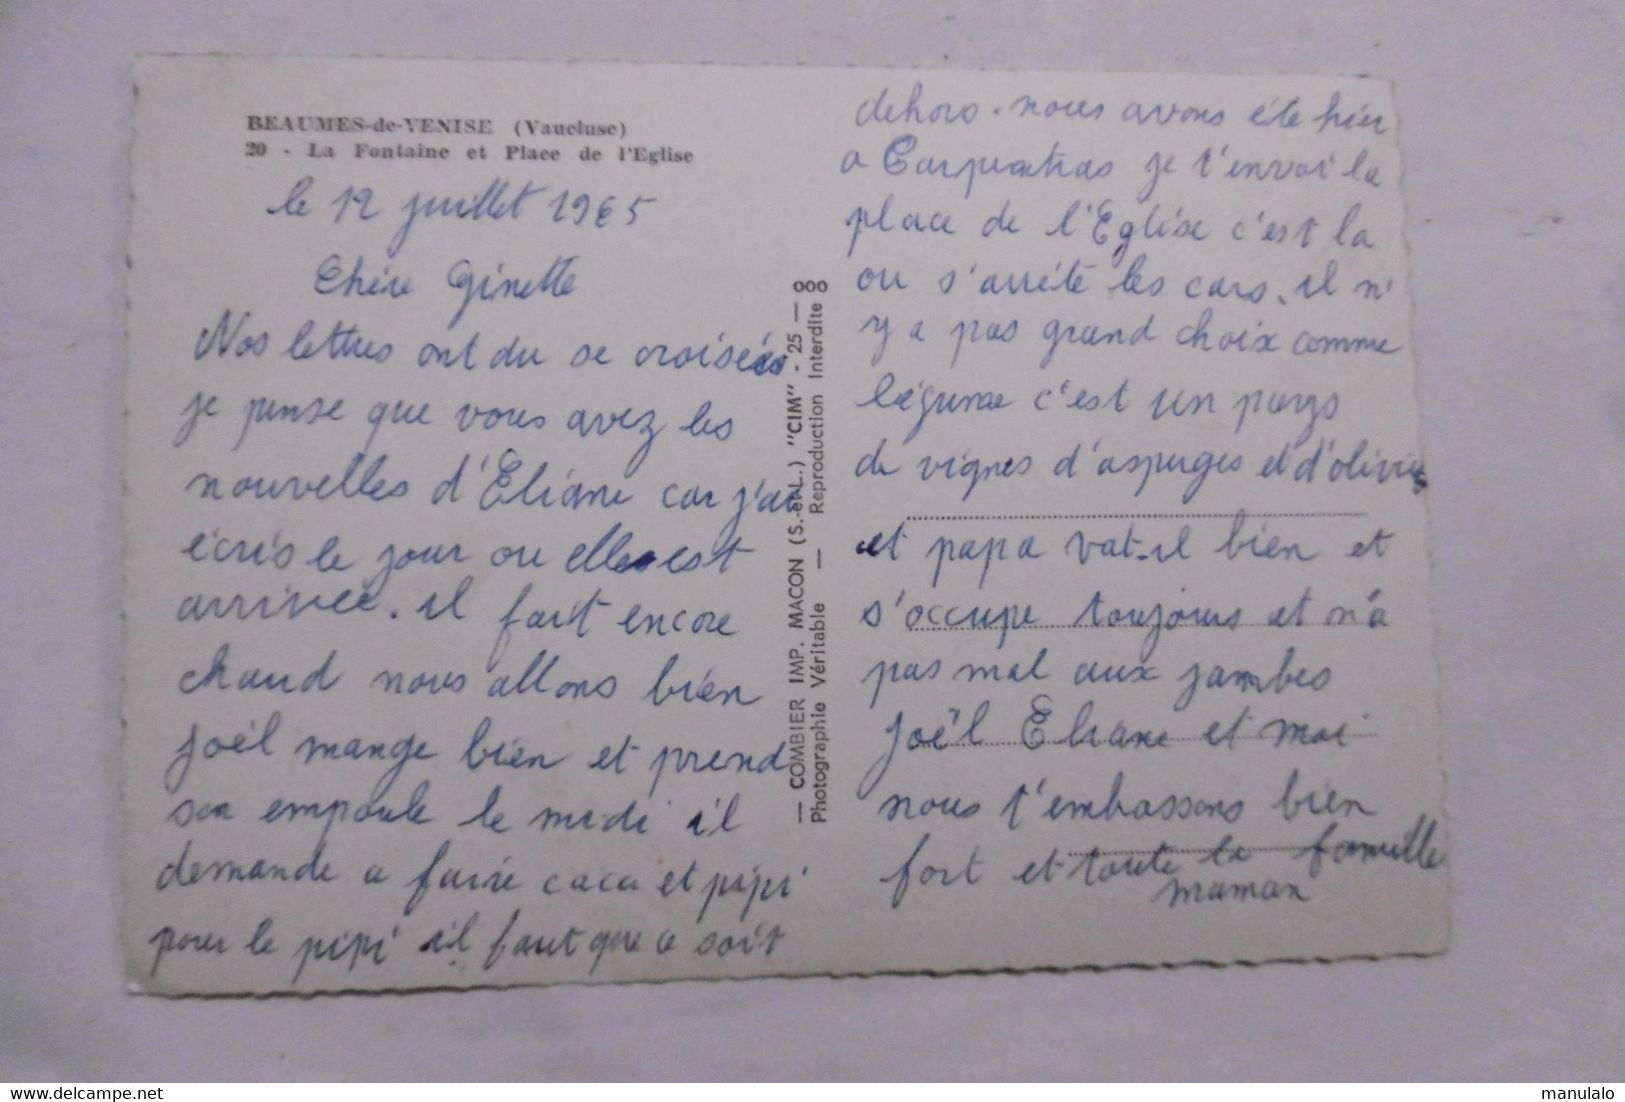 BEAUMES-de-VENISE (Vaucluse)
20 - La Fontaine et Place de l'Eglise
le 12 juillet 1965
Chère Ginette
Nos lettres ont du se croisées
je pense que vous avez les
nouvelles d'Eliane car j'ai
écris le jour ou elle est
arrivée. il fait encore
chaud nous allons bien
Joël mange bien et prend
son empoule le midi il
demande a faire caca et pipi
pour le pipi il faut que ce soit
— COMBIER IMP. MACON (S.-et-L.) "CIM" - 25 — 000
Photographie Véritable — Reproduction Interdite
dehors. nous avons été hier
a Carpentras je t'envoi la
place de l'Eglise c'est la
ou s'arrête les cars. il n'
y a pas grand choix comme
légume c'est un pays
de vignes d'asperges et d'olivies
et papa vat-il bien et
s'occupe toujours et n'a
pas mal aux jambes
Joël Eliane et moi
nous t'embassons bien
fort et toute la famille
maman
www.delcampe.net
manulalo